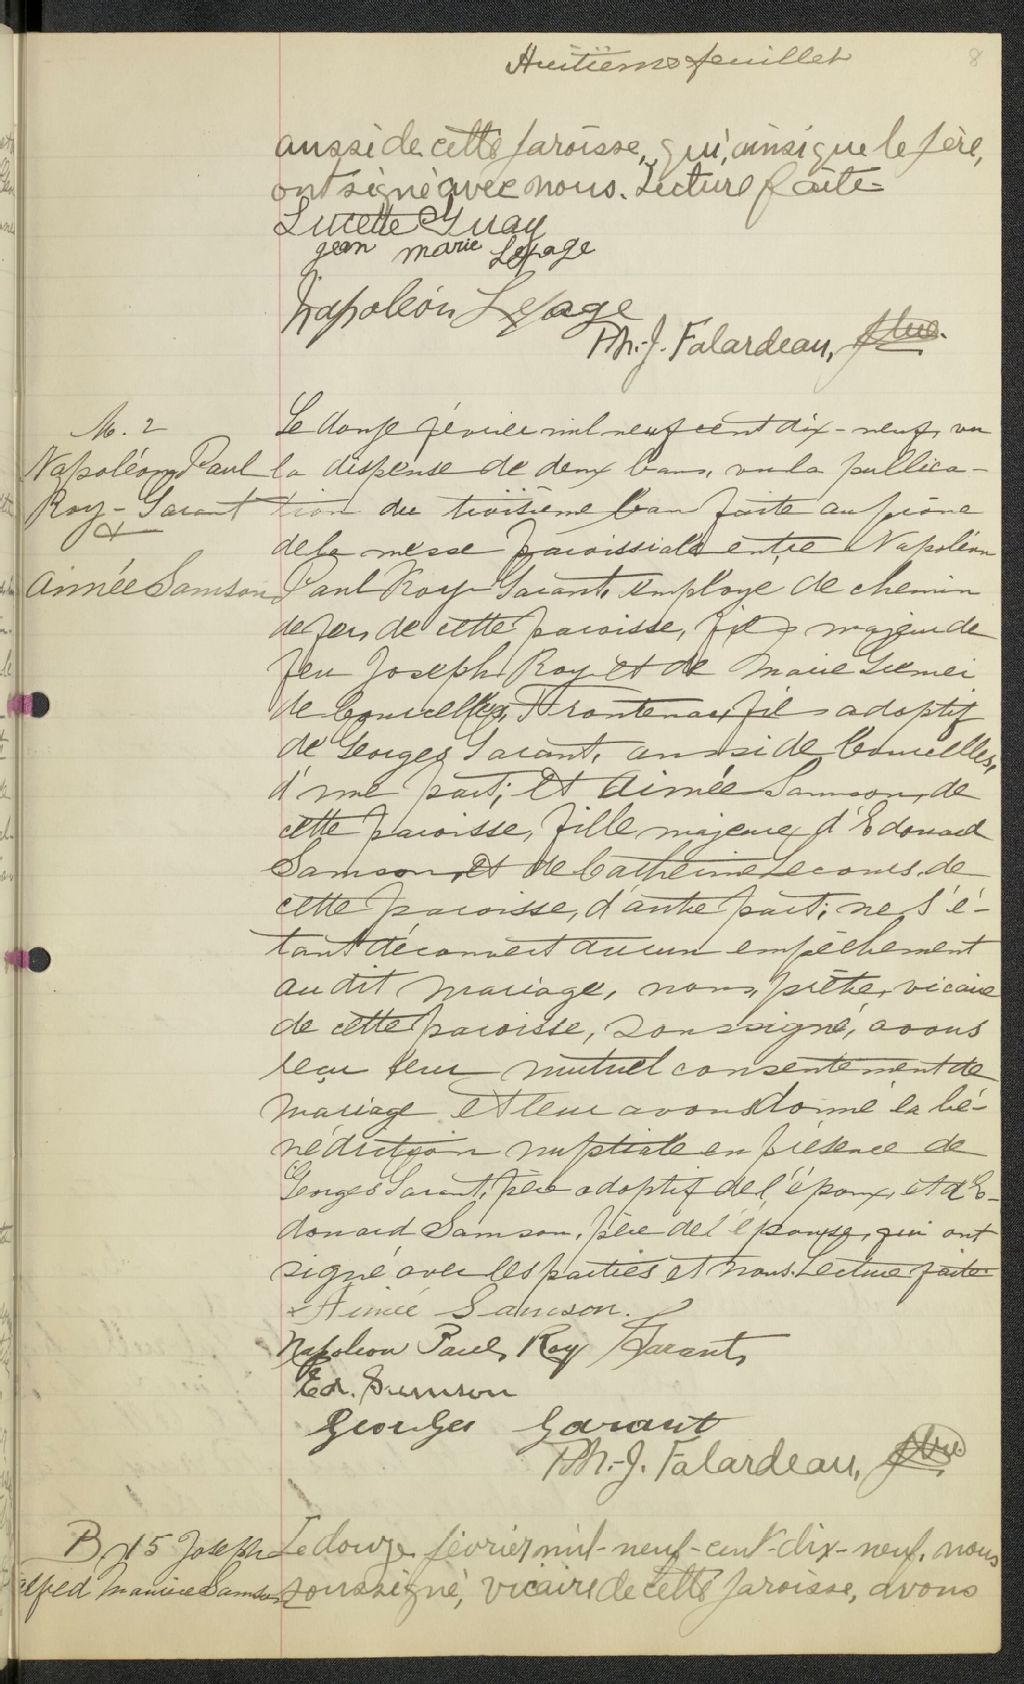 Huitième feuillet
8
aussi de cette paroisse, qui, ainsi que le père,
ont signé avec nous. Lecture faite.
Lucette Guay
jean marie Lepage
Napoléon Lepage
Ph.-J. Falardeau, ptre.
M. 2
Napoléon Paul
Roy-Garant
&
Aimée Samson
Le douze février mil neuf cent dix-neuf, vu
la dispense de deux bans, vu la publica-
tion du troisième ban faite au prône
de la messe paroissiale entre Napoléon
Paul Roy-Garant, employé de chemin
de fer, de cette paroisse, fils majeur de
feu Joseph Roy et de Marie
de Courcelles, Frontenac, fils adoptif
de Georges Garant, aussi de Courcelles,
d'une part; et Aimée Samson, de
cette paroisse, fille majeure d'Edouard
Samson, et de Catherine Lecours, de
cette paroisse, d'autre part; ne s'é-
tant découvert aucun empêchement
au dit mariage, nous, prêtre, vicaire
de cette paroisse, soussigné, avons
reçu leur mutuel consentement de
mariage et leur avons donné la bé-
nédiction nuptiale en présence de
Georges Garant, père adoptif de l'époux, et d'E-
douard Samson, père de l'épouse, qui ont
signé avec les parties et nous. Lecture faite.
Aimée Samson.
Napoleon Paul Roy Garant
Ed. Samson
Georges Garant
Ph.-J. Falardeau, ptre.
B. 15 Joseph
Alfred Maurice Samson
Le douze février mil-neuf-cent-dix-neuf, nous
soussigné, vicaire de cette paroisse, avons